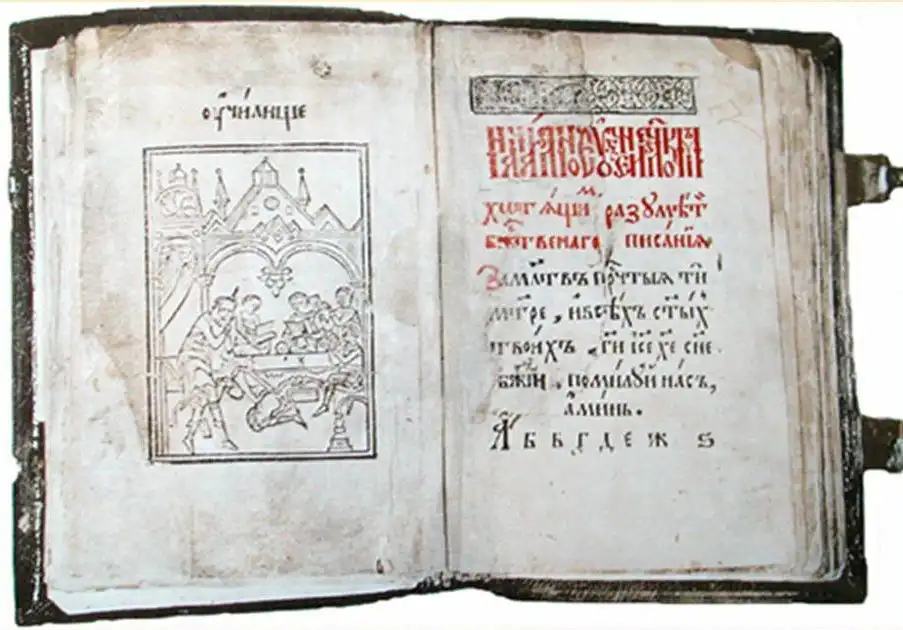 ѹчи́лище
хотѧ́щиⷨ разꙋмѣ́ти
бжⷭ҇твенаго писа́нїѧ
За мл҃твъ прⷱ҇тыѧ ти
мт҃ре, и҆ всѣ́хъ ст҃ы́хъ
твои́хъ, гд҇и і҆с҃е хе҃ сн҃е
бж҃їи, поми́лꙋй на́съ,
а҆ми́нь.
А҆ б в г д е ж ѕ